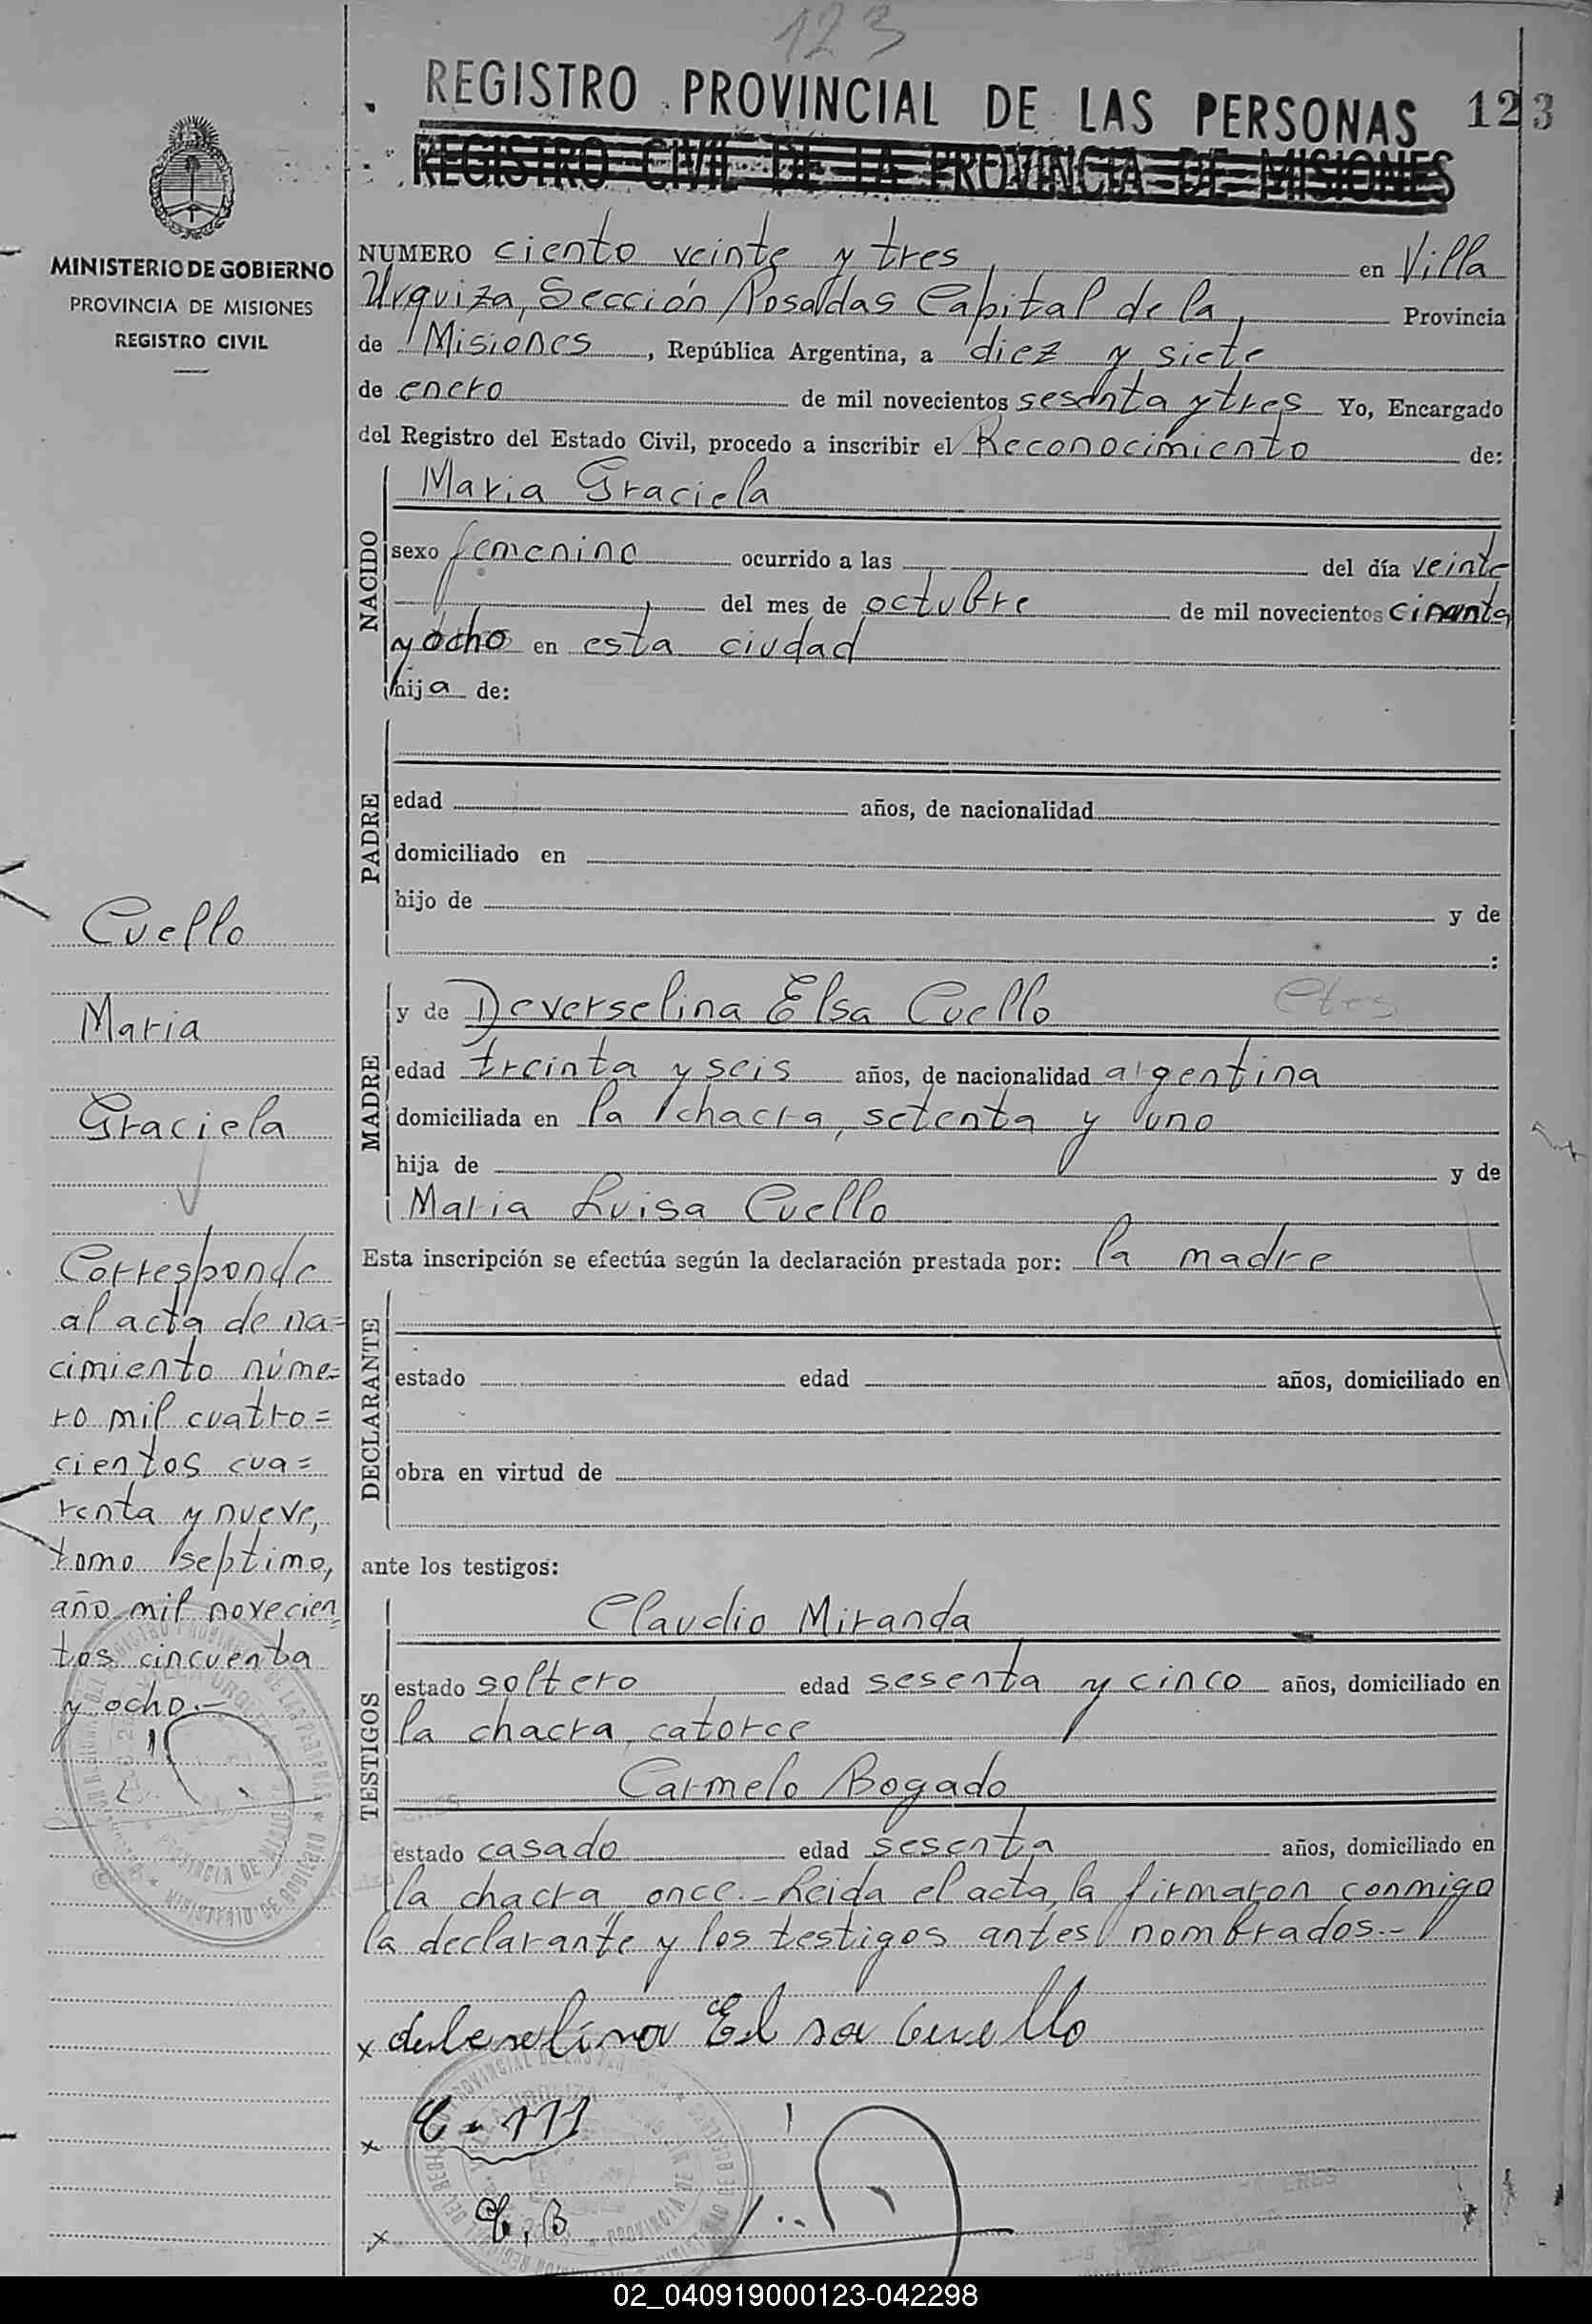 123
REGISTRO PROVINCIAL DE LAS PERSONAS 123
REGISTRO CIVIL DE LA PROVINCIA DE MISIONES
MINISTERIO DE GOBIERNO
PROVINCIA DE MISIONES
REGISTRO CIVIL
NUMERO ciento veinte y tres, en Villa
Urquiza, Sección Posadas Capital de la, Provincia
de Misiones, República Argentina, a diez y siete
de enero de mil novecientos sesenta y tres Yo, Encargado
del Registro del Estado Civil, procedo a inscribir el Reconocimiento de:
NACIDO
Maria Graciela
sexo femenino ocurrido a las del día veinte
del mes de octubre de mil novecientos
y ocho en esta ciudad
hija de:
PADRE
edad años, de nacionalidad
domiciliado en
hijo de y de
:
MADRE
y de Deverselina Elsa Cuello
edad treinta y seis años, de nacionalidad argentina
domiciliada en la chacra, setenta y uno
hija de y de
Maria Luisa Cuello
Esta inscripción se efectúa según la declaración prestada por: la madre
DECLARANTE
estado edad años, domiciliado en
obra en virtud de
ante los testigos:
TESTIGOS
Claudio Miranda
estado soltero edad sesenta y cinco años, domiciliado en
la chacra, catorce
Carmelo Bogado
estado casado edad sesenta años, domiciliado en
la chacra, once.- Leida el acta, la firmaron conmigo
la declarante y los testigos antes nombrados.-
x Elsa Cuello
x
x C.B
Cuello
Maria
Graciela
Corresponde
al acta de na=
cimiento núme=
ro mil cuatro=
cientos cua=
renta y nueve,
tomo septimo,
año mil novecien=
tos cincuenta
y ocho.-
02_040919000123-042298